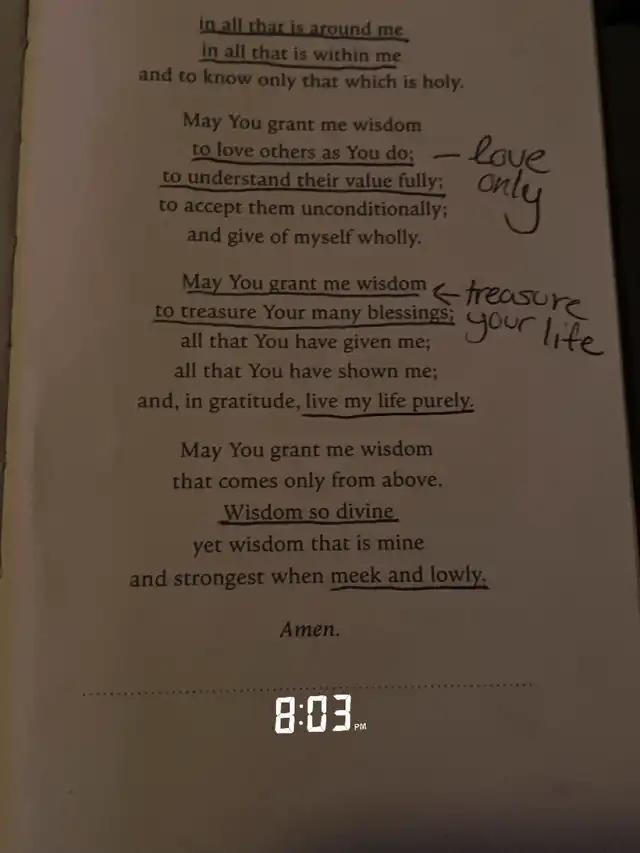 in all that is around me
in all that is within me
and to know only that which is holy.
May You grant me wisdom
to love others as You do; — love
to understand their value fully; only
to accept them unconditionally;
and give of myself wholly.
May You grant me wisdom ← treasure
to treasure Your many blessings; your life
all that You have given me;
all that You have shown me;
and, in gratitude, live my life purely.
May You grant me wisdom
that comes only from above.
Wisdom so divine
yet wisdom that is mine
and strongest when meek and lowly.
Amen.
8:03 PM